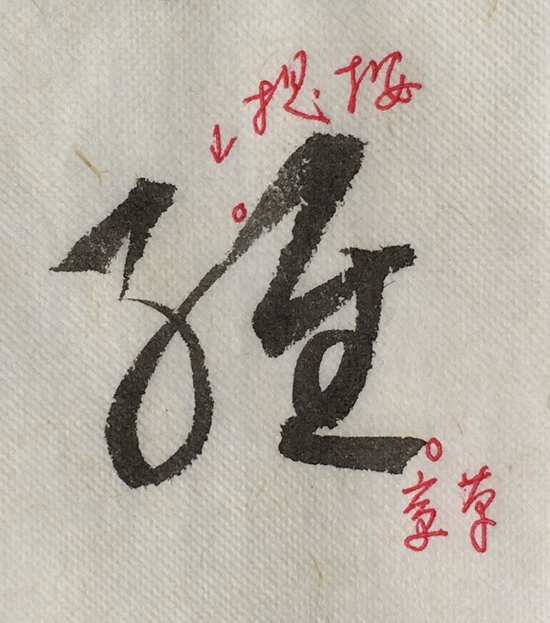 提按
雖
章草